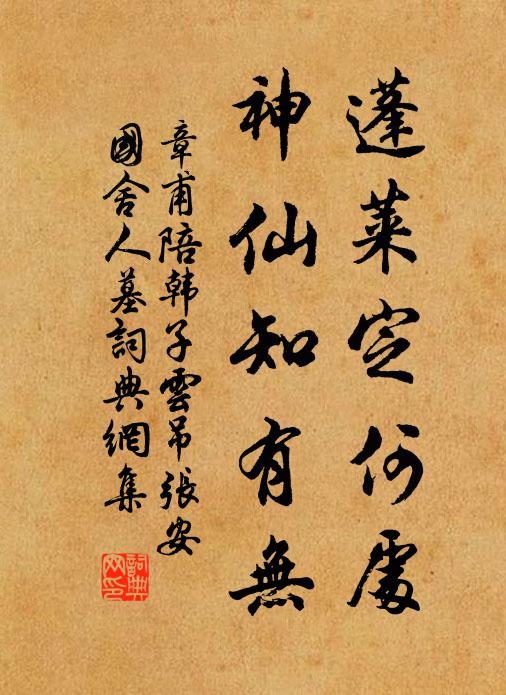 蓬萊定何處
神仙知有無
章甫陪韩子雲吊張安
國舍人墓詞典網集
詞典
网印